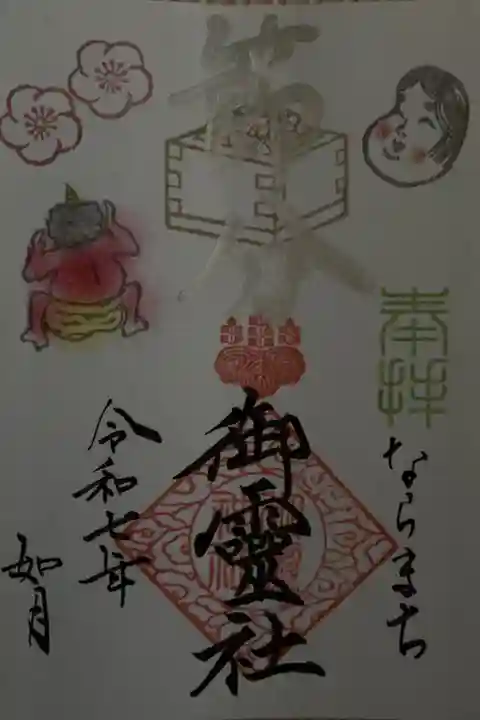 奉拝
ならまち
節分
御靈社
令和七年
如月